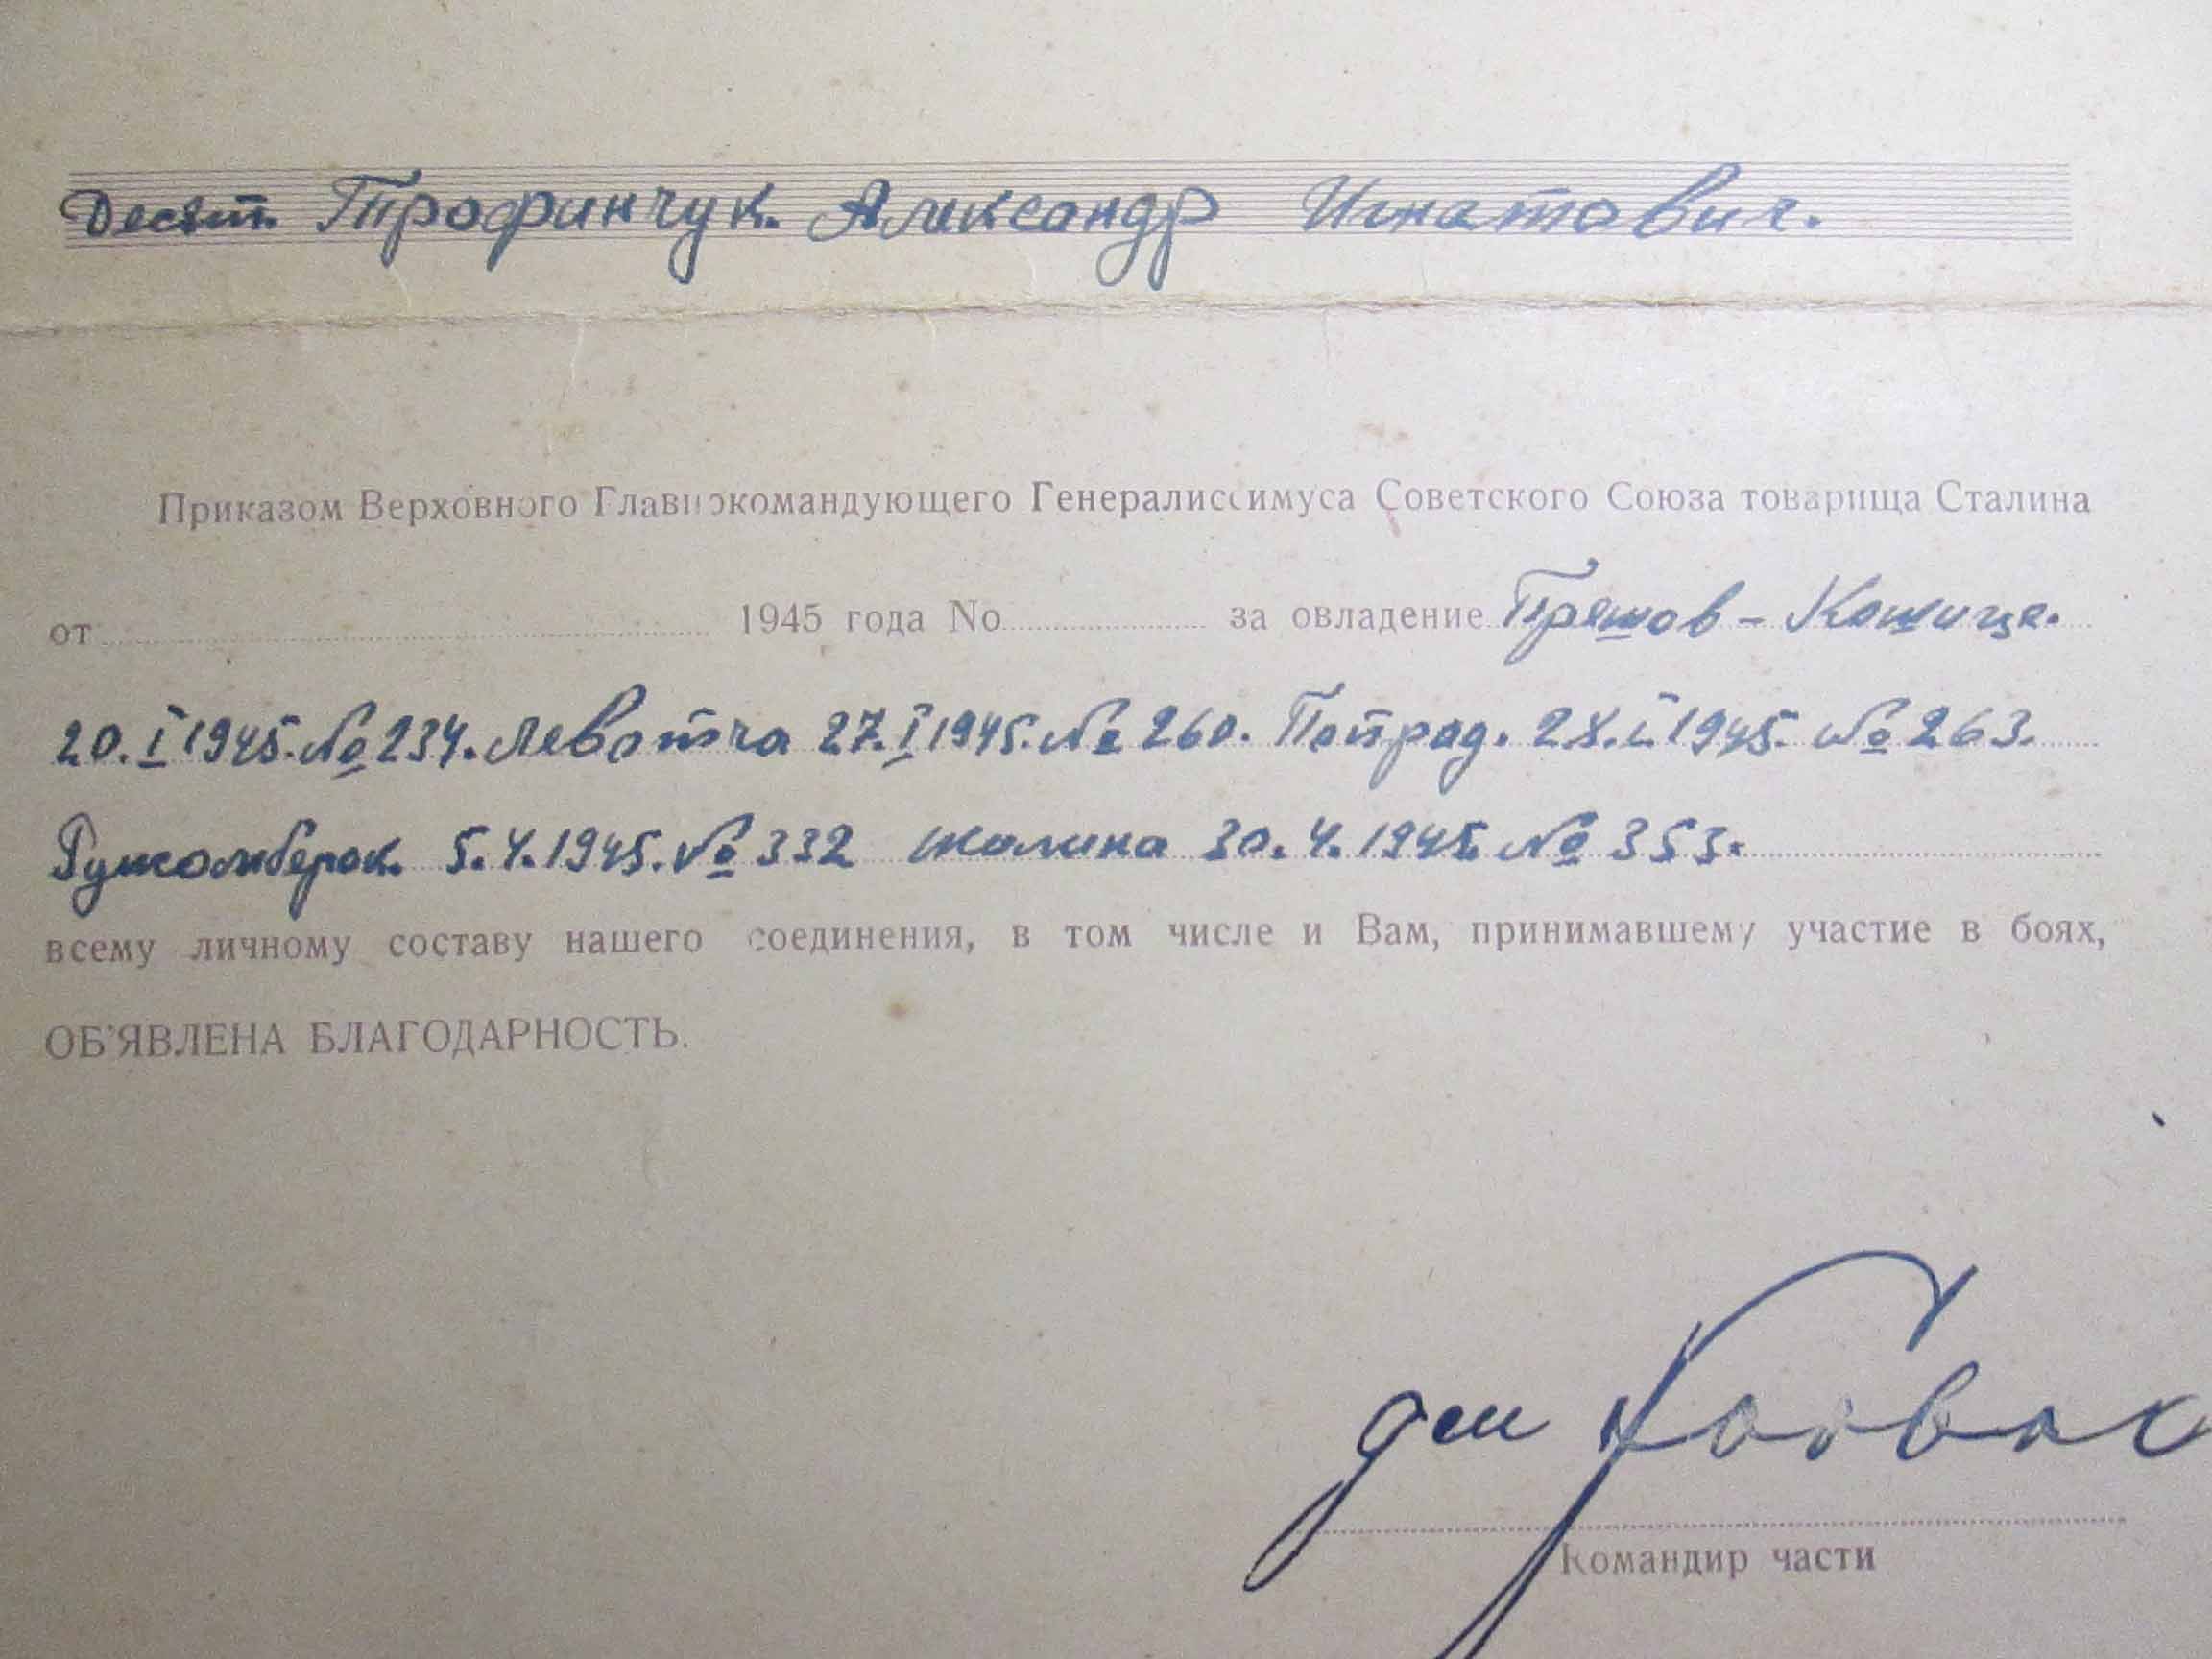 Десят. Трофинчук. Александр Игнатович.
Приказом Верховного Главнокомандующего Генералиссимуса Советского Союза товарища Сталина
от 1945 года No за овладение Прешов - Кошице.
20. I 1945. № 234. Левотча 27. I 1945. № 260. Попрад. 28. I. 1945. № 263.
Ружомберок. 5. 4. 1945. № 332 Жилина 30. 4. 1945. № 353.
всему личному составу нашего соединения, в том числе и Вам, принимавшему участие в боях,
ОБ'ЯВЛЕНА БЛАГОДАРНОСТЬ.
Командир части